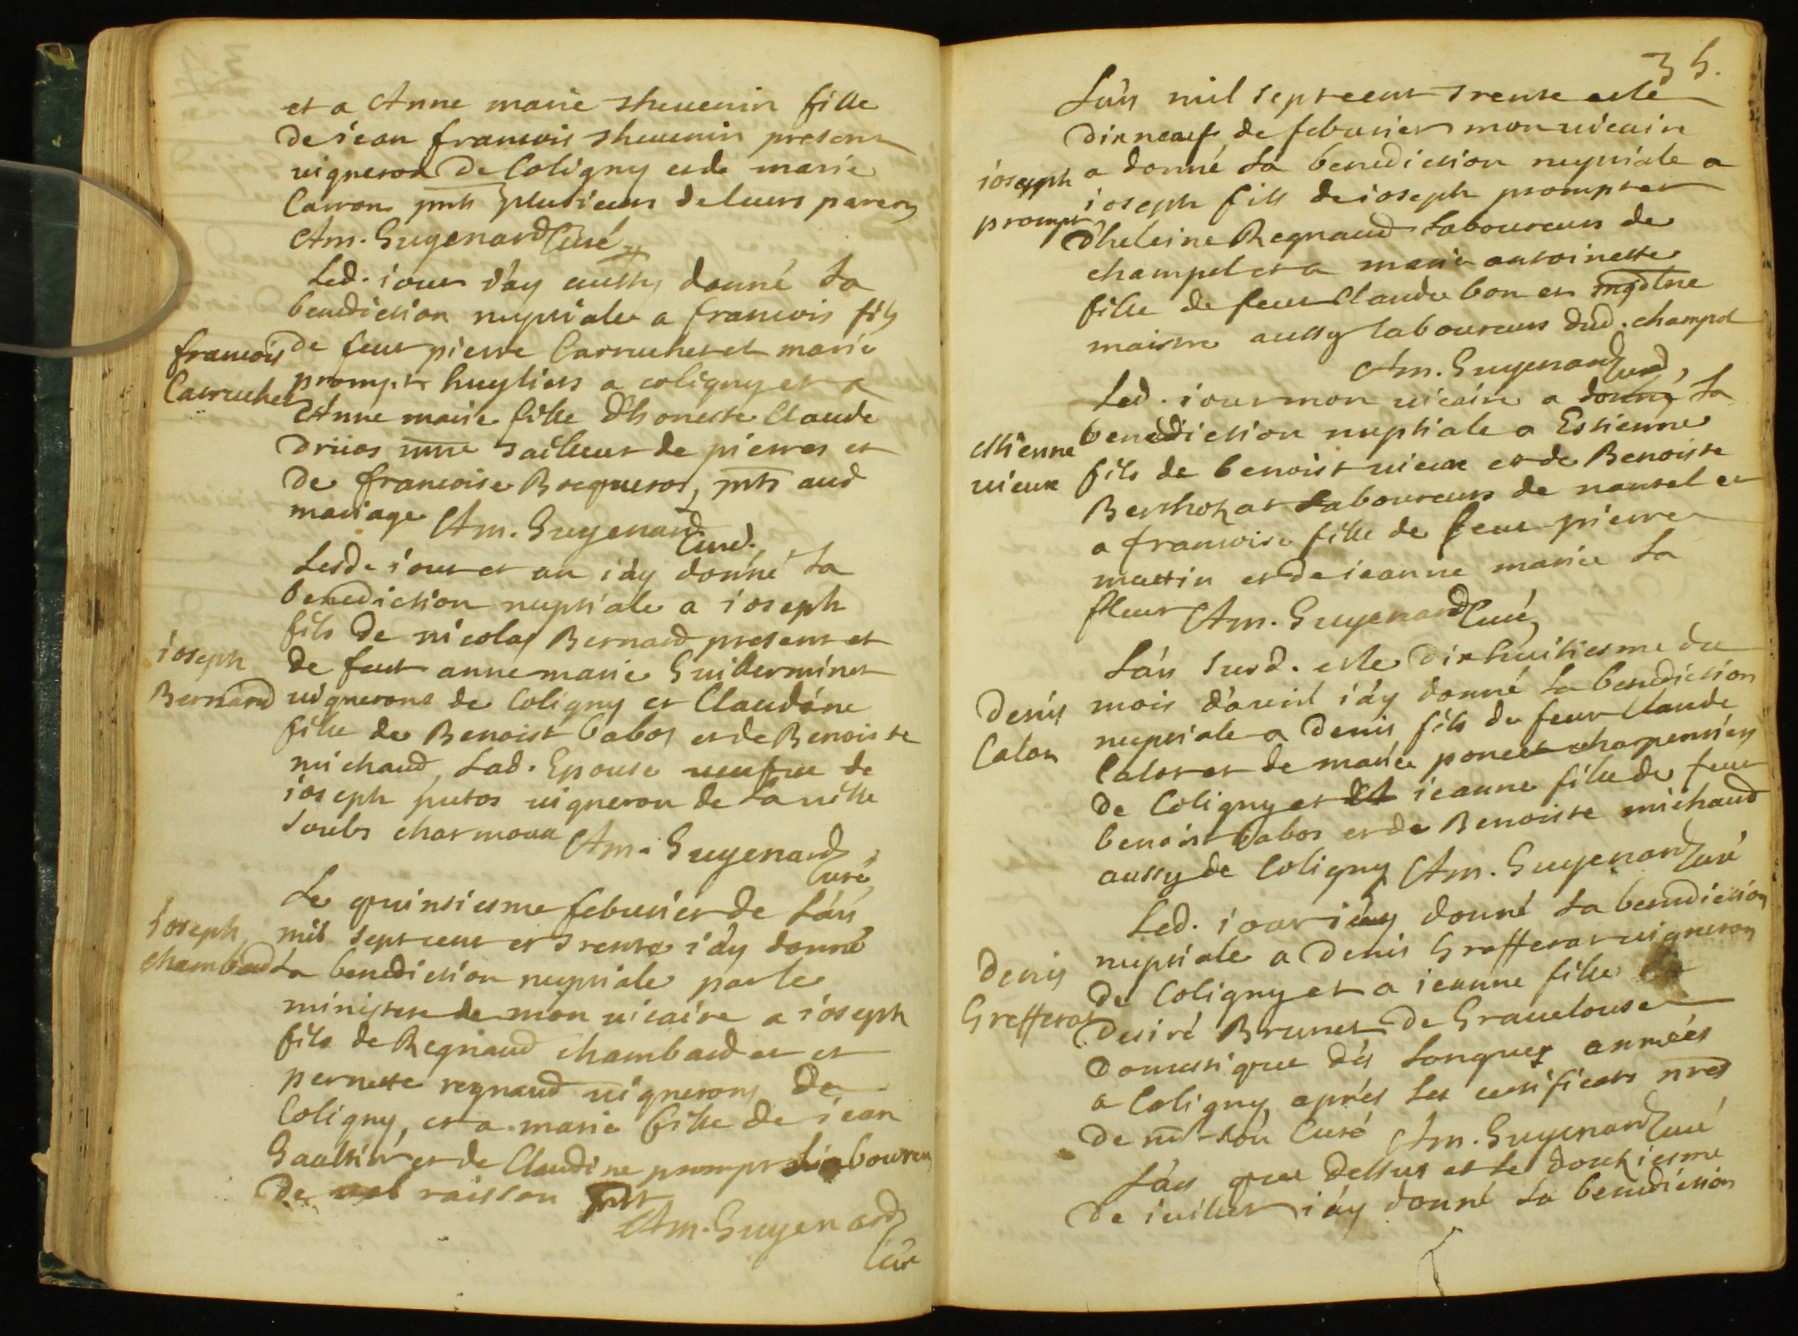 et a Anne marie thevenin fille
de iean francois thevenin present
vigneron de Coligny et de marie
Carron pnts plusieurs de leurs parens
Am. Guyenard Curé
Led. iour i'ay aussy donné la
benediction nuptiale a francois fils
francois
Carruchet
de feut pierre Carruchet et marie
prompt huyliers a coligny et a
Anne marie fille d'honeste Claude
tailleur de pierres et
de francoise Bocquerot, pnts aud
mariage Am. Guyenard
Curé.
Lesd. iour et an i'ay donné la
benediction nuptiale a ioseph
fils de nicolas Bernard present et
ioseph
Bernard
de feut anne marie Guillerminet
vignerons de Coligny et Claudine
fille de Benoist babos et de Benoiste
michaud, Lad. Epouse veufve de
ioseph putos vigneron de La ville
soubs charmoux Am. Guyenard
Curé
Le quinsiesme febvrier de L'an
ioseph
chambard
mil sept cent et trente i'ay donné
La benediction nuptiale par le
ministere de mon vicaire a ioseph
fils de Regnaud chambard et et
pernette regnaud vignerons de
Coligny, et a marie fille de iean
Gaultier et de Claudine prompt Laboureur
de raisson pnt
Am. Guyenard
Curé
35.
L'an mil sept cent trente et le
dixneuf de febvrier mon vicaire
ioseph
prompt
a donné La benediction nuptiale a
ioseph fils de ioseph prompt et
d'heleine Regnaud Laboureurs de
champel et a marie antoinette
fille de feut Claude bon et magdlne
maistre aussy laboureurs dud. champel
Am. Guyenard Curé
Led. iour mon vicaire a donné La
estienne
vieux
benediction nuptiale a Estienne
fils de benoist vieux et de Benoiste
Berthozat Laboureurs de nantel et
a francoise fille de feut pierre
mattin et de ieanne marie La
fleur Am. Guyenard Curé
L'an susd. et le dixhuitiesme du
Denis
Calos
mois d'avril i'ay donné La benediction
nuptiale a Denis fils de feut Claude
Calos et de marie poncet charpentiers
de Coligny et ieanne fille de feut
benoist babos et de Benoiste michaud
aussy de Coligny Am. Guyenard Curé
Led. iour i'ay donné La benediction
Denis
Grefferat
nuptiale a Denis Grefferat vigneron
de Coligny et a ieanne fille
desiré Brunet de Gravelouse
domestique dés Longues années
a Coligny aprés Les certificats
de mr son Curé Am. Guyenard Curé
L'an que dessus et le douziesme
de iuillet i'ay donné La benediction